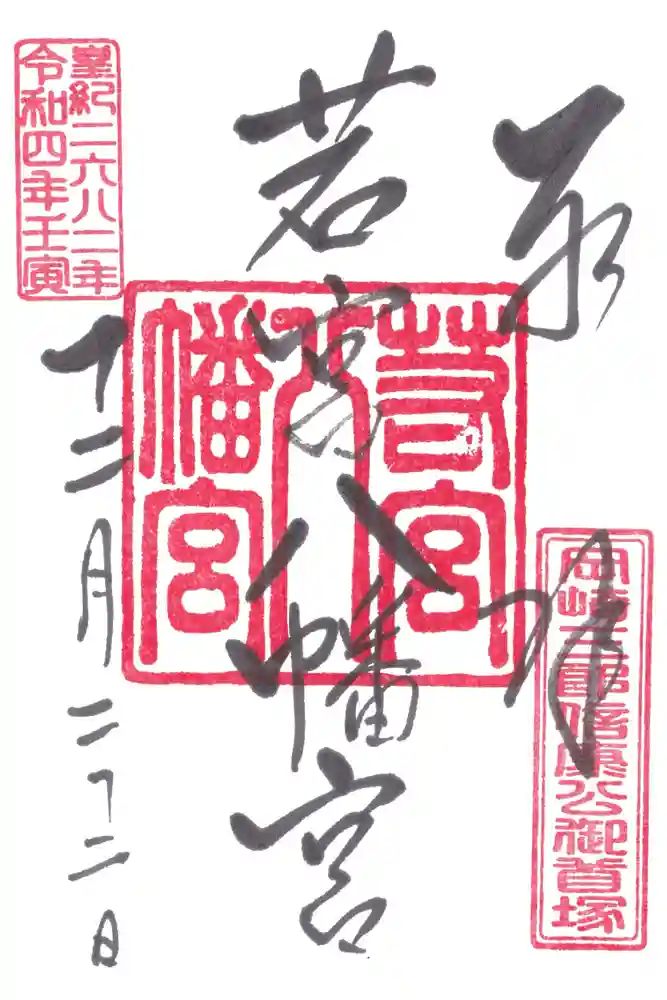 奉拝
岡崎三郎信康公御首塚
若宮八幡宮
若宮
八
幡宮
皇紀二六八二年
令和四年壬寅
十二月二十二日